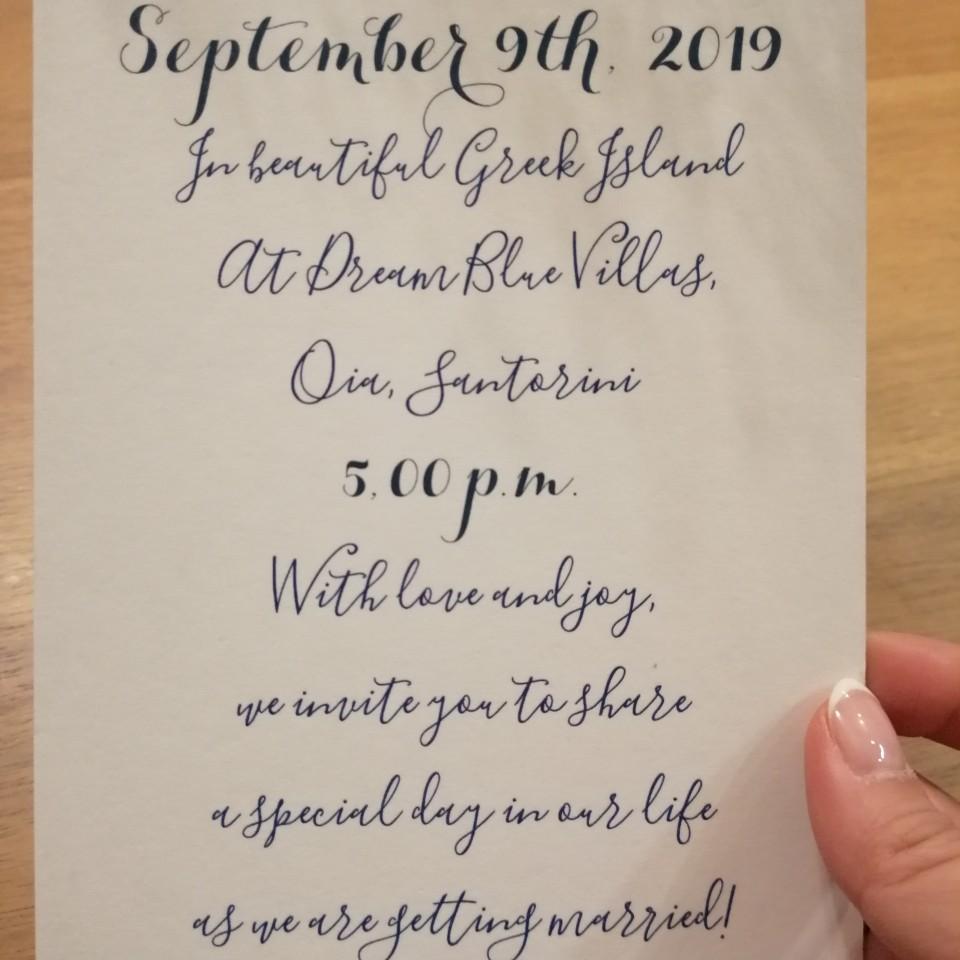 September 9th, 2019
In beautiful Greek Island
At Dream Blue Villas,
Oia, Santorini
5,00 p.m.
With love and joy,
we invite you to share
a special day in our life
as we are getting married!